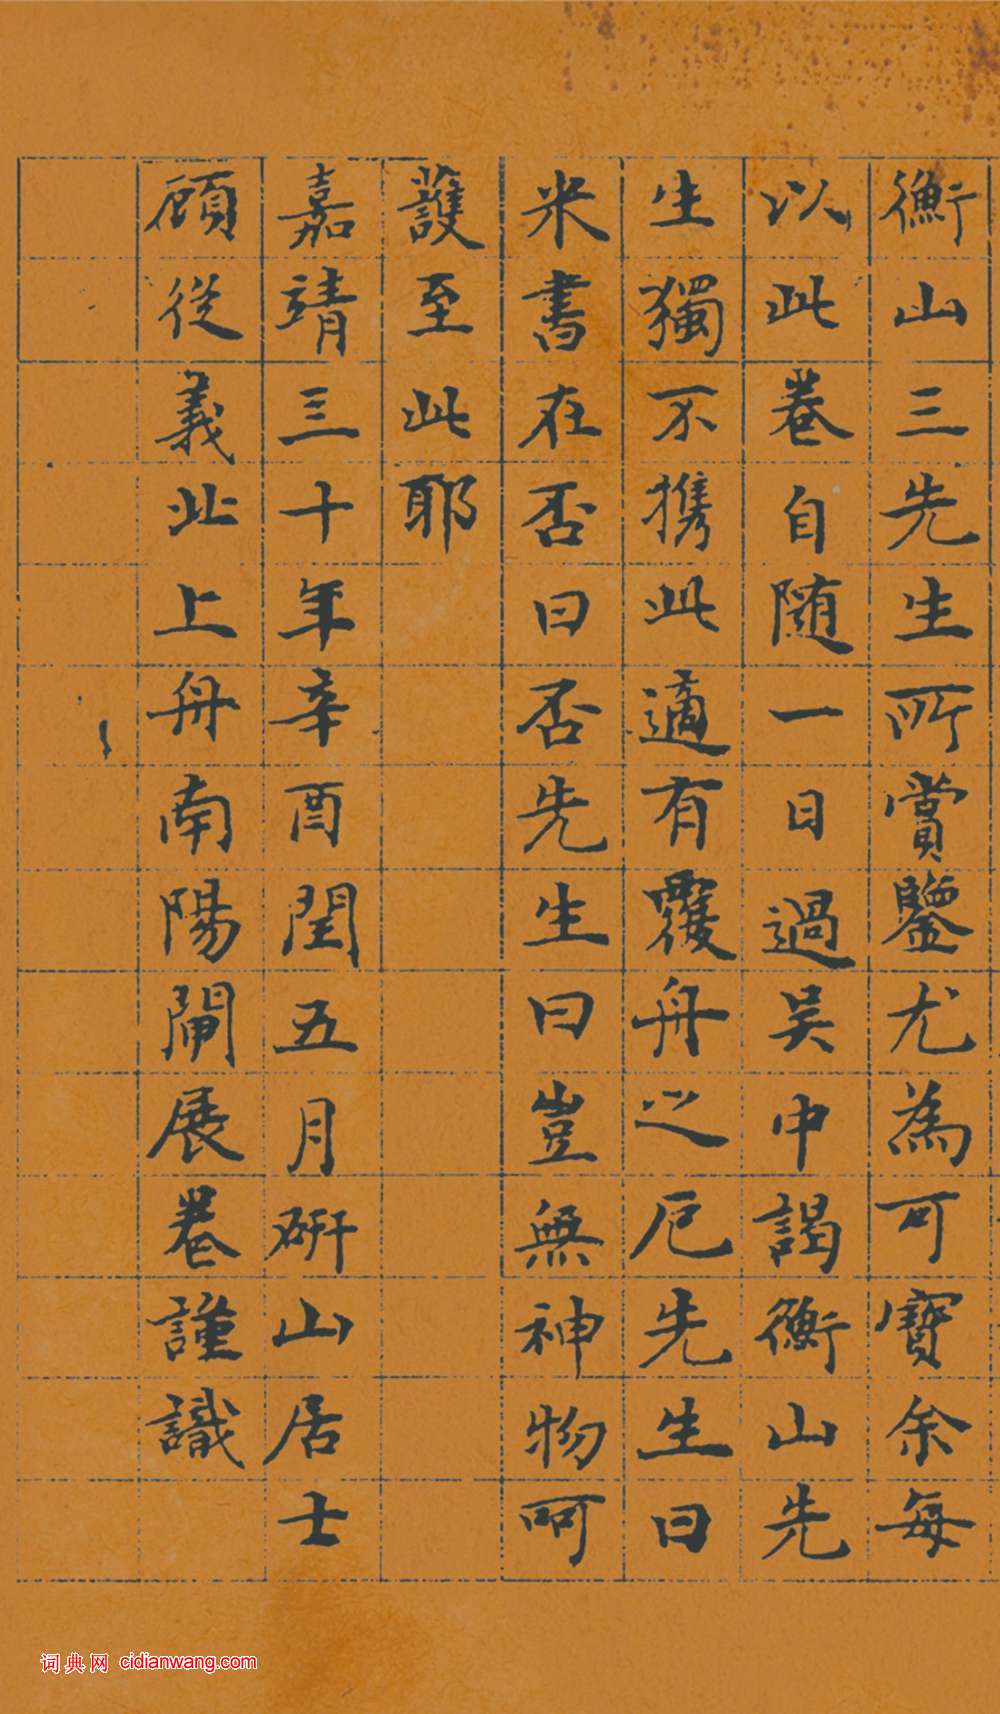 衡山三先生所賞鑒尤為可寶余每
以此卷自随一日過吴中謁衡山先
生獨不携此適有覆舟之厄先生曰
米書在否曰否先生曰豈無神物呵
護至此耶
嘉靖三十年辛酉閏五月研山居士
顧從義北上舟南陽閘展卷謹識
词典网 cidianwang.com